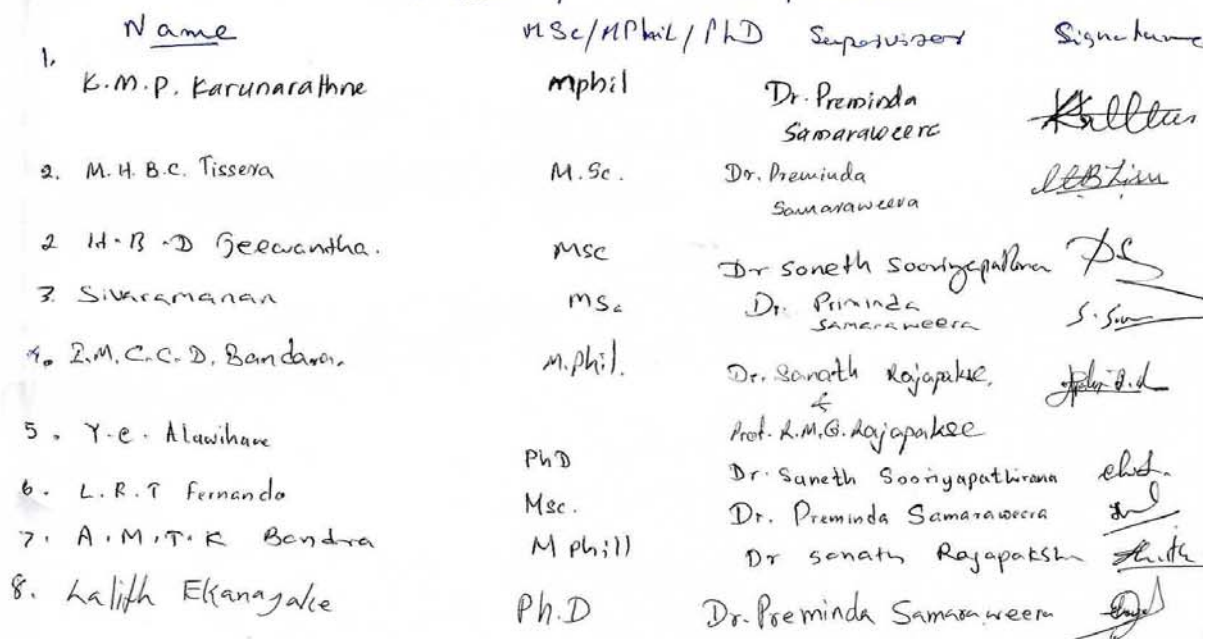 Name MSc/MPhil/PhD Supervisor Signature
1. K.M.P. Karunarathne Mphil Dr. Preminda
Samaraweera
2. M.H.B.C. Tissera M.Sc. Dr. Preminda
Samaraweera
2 H.B.D Geewantha. MSc Dr Soneth Sooriyapathirana
3. Sivaramanan MSc Dr. Priminda
Samaraweera S.
4. I.M.C.C.D. Bandara. M.phil. Dr. Sanath Rajapakse,
&
Prof. R.M.G. Rajapakse
5. Y.C. Alawihare PhD Dr. Suneth Sooriyapathirana
6. L.R.T Fernando Msc. Dr. Preminda Samaraweera
7. A.M.T.K Bandra M Phill Dr sanath Rajapaksha
8. Lalith Ekanayake Ph.D Dr. Preminda Samaraweera